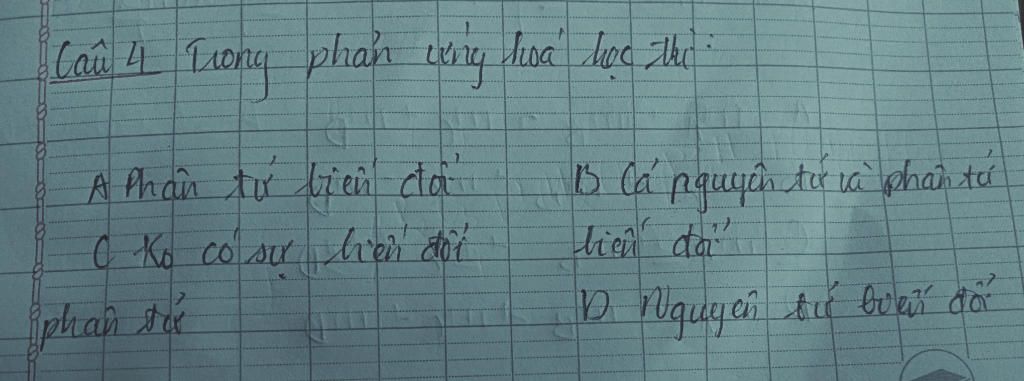 Câu 4 Trong phản ứng hoá học thì:
A Phân tử biến đổi B Cả nguyên tử và phân tử
C Ko có sự biến đổi biến đổi
phân tử D Nguyên tử biến đổi